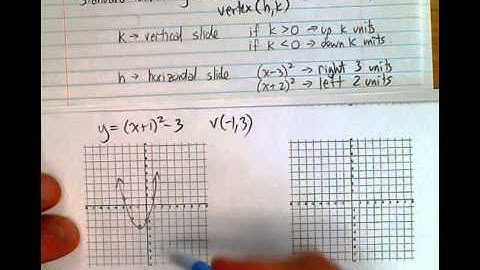 vertex (h,k)
k → vertical slide if k > 0 → up k units
if k < 0 → down k units
h → horizontal slide (x-3)² → right 3 units
(x+2)² → left 2 units
y = (x+1)² - 3 v(-1,3)